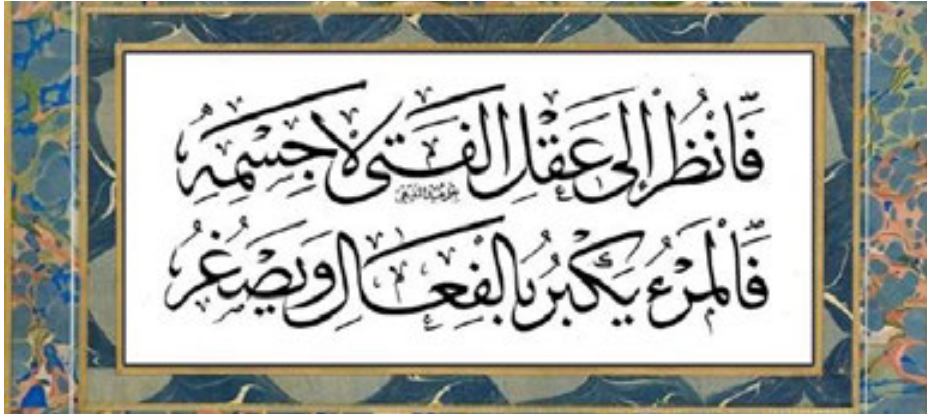 فَانْظُرْ إِلَى عَقْلِ الفَتَى لَا جِسْمِهِ
فَالْمَرْءُ يَكْبُرُ بِالْفِعَالِ وَيَصْغُرُ